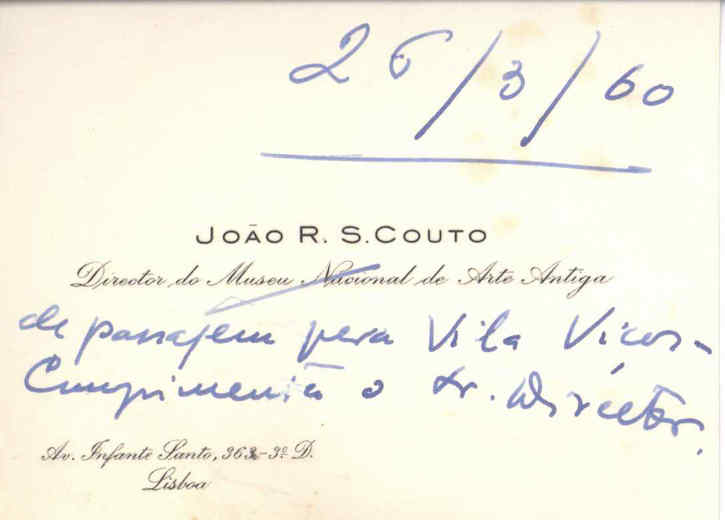 26/3/60
JOÃO R. S. COUTO
Director do Museu Nacional de Arte Antiga
de passagem para Vila Viçosa
Cumprimenta o Sr. Director.
Av. Infante Santo, 363-3º D.
Lisboa